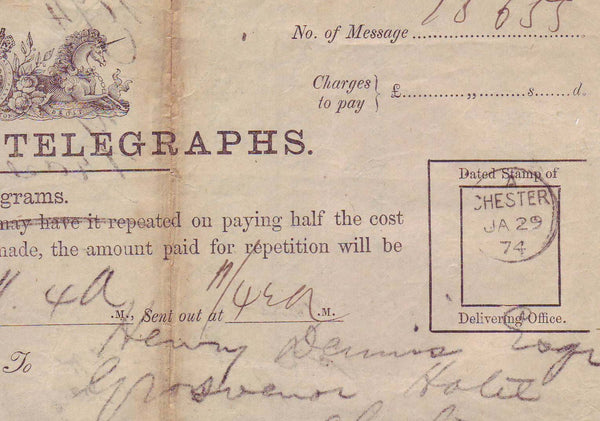 No. of Message 18655
Charges to pay } £ ,, s. d.
TELEGRAPHS.
grams.
may have it repeated on paying half the cost
made, the amount paid for repetition will be
Dated Stamp of
A
CHESTER
JA 29
74
Delivering Office.
.M., Sent out at .M.
To Henry Dennis Esqr
Grosvenor Hotel